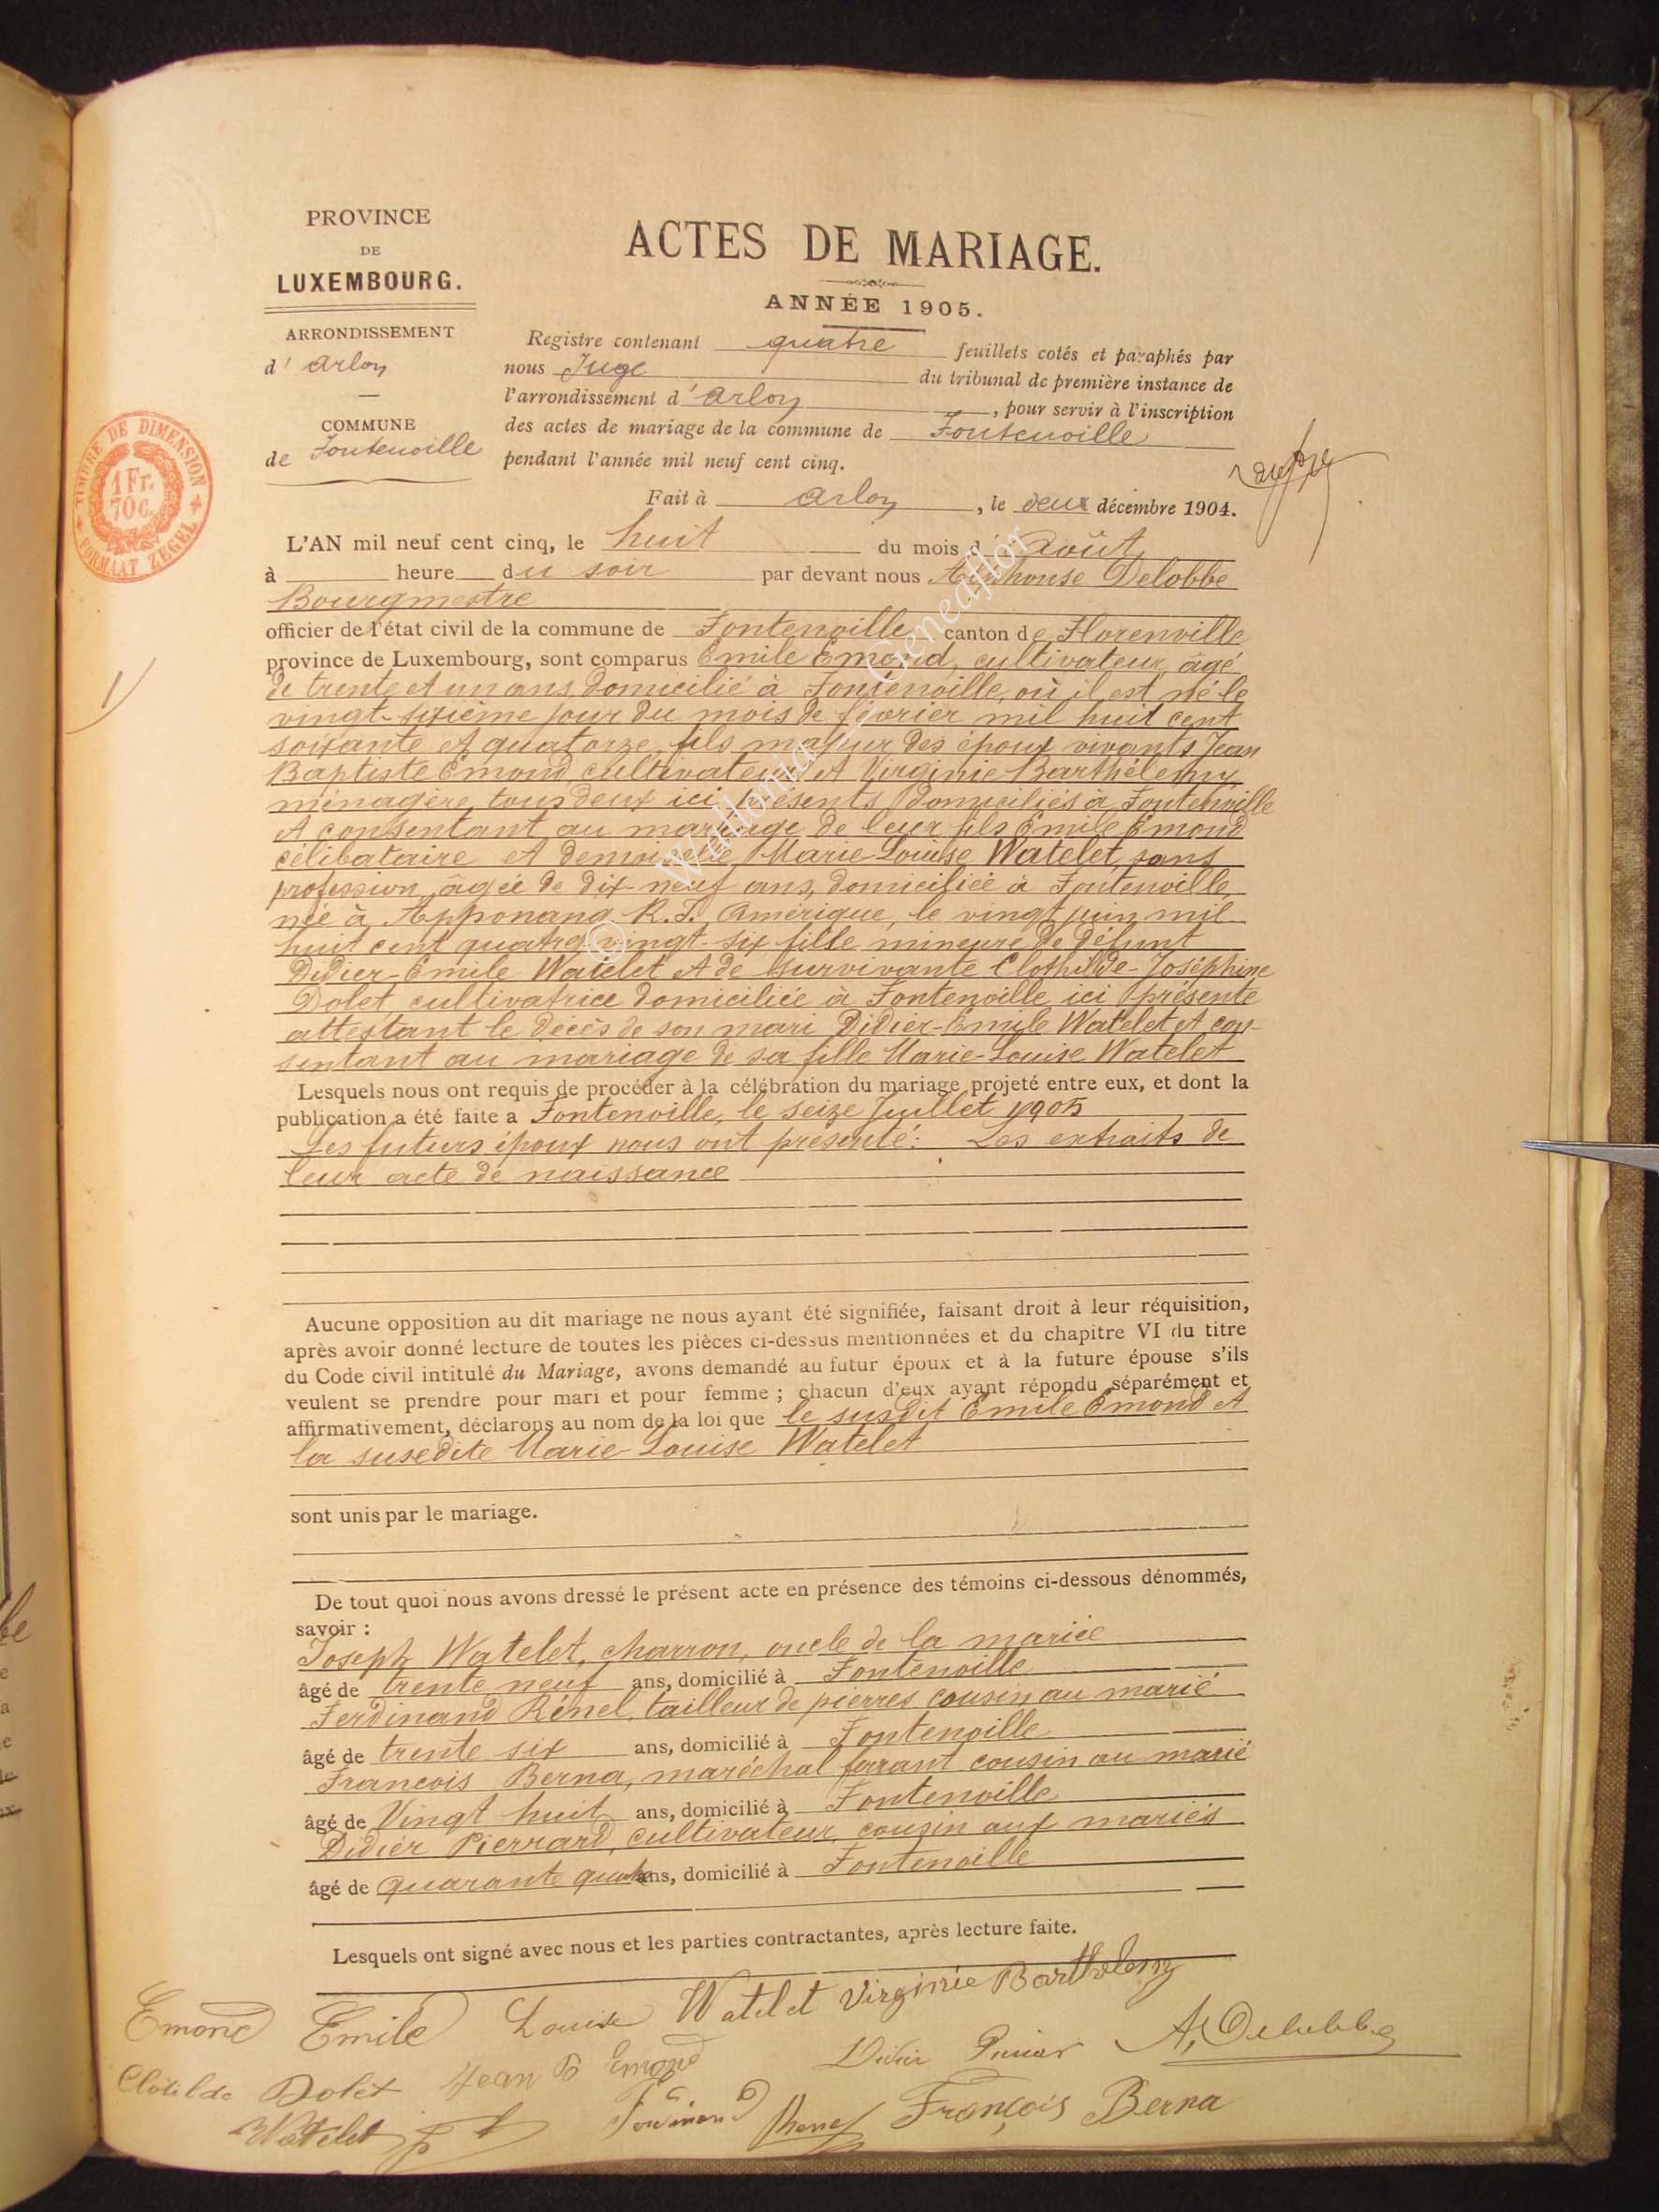 PROVINCE
DE
LUXEMBOURG.
ARRONDISSEMENT
d' Arlon
COMMUNE
de Fontenoille
TIMBRE DE DIMENSION
1 Fr.
70 C.
FORMAAT ZEGEL
ACTES DE MARIAGE.
ANNÉE 1905.
Registre contenant quatre feuillets cotés et paraphés par
nous Juge du tribunal de première instance de
l'arrondissement d' Arlon, pour servir à l'inscription
des actes de mariage de la commune de Fontenoille
pendant l'année mil neuf cent cinq.
Fait à Arlon, le deux décembre 1904.
L'AN mil neuf cent cinq, le huit du mois d' Août
à heure du soir par devant nous Alphonse Delobbe
Bourgmestre
officier de l'état civil de la commune de Fontenoille canton de Florenville
province de Luxembourg, sont comparus Emile Emond, cultivateur, âgé
de trente et un ans, domicilié à Fontenoille, où il est né le
vingt-sixième jour du mois de février mil huit cent
soixante et quatorze, fils majeur des époux vivants Jean
Baptiste Emond cultivateur et Virginie Barthélemy
ménagère, tous deux ici présents domiciliés à Fontenoille
et consentant au mariage de leur fils Emile Emond
célibataire et demoiselle Marie-Louise Watelet, sans
profession, âgée de dix-neuf ans, domiciliée à Fontenoille,
née à Apponang R. I. Amérique, le vingt juin mil
huit cent quatre vingt-six fille mineure de défunt
Didier-Emile Watelet et de survivante Clothilde-Joséphine
Dolet, cultivatrice domiciliée à Fontenoille, ici présente
attestant le décès de son mari Didier-Emile Watelet et con-
sentant au mariage de sa fille Marie-Louise Watelet
Lesquels nous ont requis de procéder à la célébration du mariage projeté entre eux, et dont la
publication a été faite a Fontenoille, le seize Juillet 1905
Les futurs époux nous ont présenté: Les extraits de
leur acte de naissance
Aucune opposition au dit mariage ne nous ayant été signifiée, faisant droit à leur réquisition,
après avoir donné lecture de toutes les pièces ci-dessus mentionnées et du chapitre VI du titre
du Code civil intitulé du Mariage, avons demandé au futur époux et à la future épouse s'ils
veulent se prendre pour mari et pour femme ; chacun d'eux ayant répondu séparément et
affirmativement, déclarons au nom de la loi que le susdit Emile Emond et
la susedite Marie-Louise Watelet
sont unis par le mariage.
De tout quoi nous avons dressé le présent acte en présence des témoins ci-dessous dénommés,
savoir :
Joseph Watelet, charron, oncle de la mariée
âgé de trente neuf ans, domicilié à Fontenoille
Ferdinand Rénel, tailleur de pierres cousin au marié
âgé de trente six ans, domicilié à Fontenoille
François Berna, maréchal ferrant cousin au marié
âgé de Vingt huit ans, domicilié à Fontenoille
Didier Pierrard, cultivateur cousin aux mariés
âgé de quarante quatre ans, domicilié à Fontenoille
Lesquels ont signé avec nous et les parties contractantes, après lecture faite.
Emond Emile Louise Watelet Virginie Barthelemy
Clotilde Dolet Jean B Emond Didier A. Delobbe
Watelet Ferdinand François Berna
© Wallonia - Geneaflor